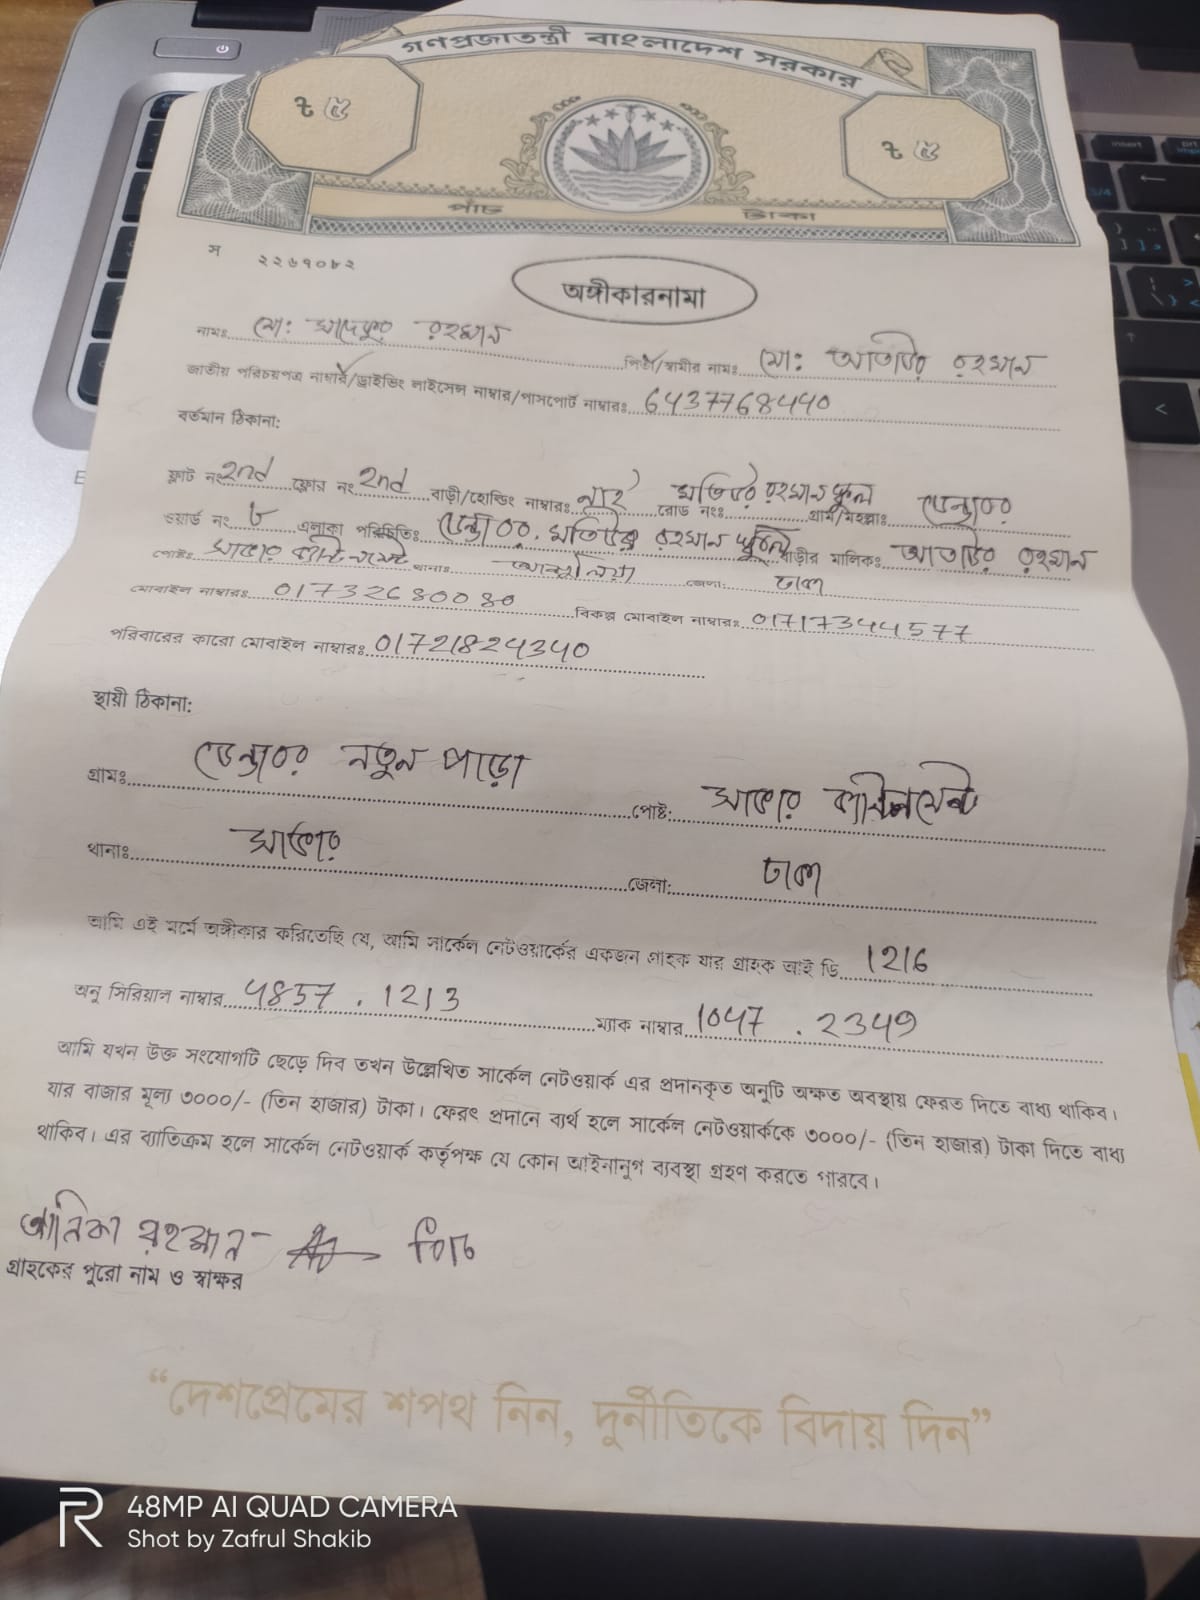 গণপ্রজাতন্ত্রী বাংলাদেশ সরকার
৳ ৫ ৳ ৫
পাঁচ টাকা
স ২২৬৭০৮২
অঙ্গীকারনামা
নামঃ মো: সাদেকুর রহমান পিতা/স্বামীর নামঃ মো: আতাউর রহমান
জাতীয় পরিচয়পত্র নাম্বার/ড্রাইভিং লাইসেন্স নাম্বার/পাসপোর্ট নাম্বারঃ 6437768440
বর্তমান ঠিকানা:
ফ্লাট নং 2nd ফ্লোর নং 2nd বাড়ী/হোল্ডিং নাম্বারঃ নাই রোড নংঃ মতিউর রহমান স্কুল গ্রাম/মহল্লাঃ ডেন্ডাবর
ওয়ার্ড নং ৮ এলাকা পরিচিতিঃ ডেন্ডাবর, মতিউর রহমান স্কুল বাড়ীর মালিকঃ আতাউর রহমান
পোষ্টঃ সাভার ক্যান্টনমেন্ট থানাঃ আশুলিয়া জেলা: ঢাকা
মোবাইল নাম্বারঃ 01732680080 বিকল্প মোবাইল নাম্বারঃ 01717344577
পরিবারের কারো মোবাইল নাম্বারঃ 01721824340
স্থায়ী ঠিকানা:
গ্রামঃ ডেন্ডাবর নতুন পাড়া পোষ্ট: সাভার ক্যান্টনমেন্ট
থানাঃ সাভার জেলা: ঢাকা
আমি এই মর্মে অঙ্গীকার করিতেছি যে, আমি সার্কেল নেটওয়ার্কের একজন গ্রাহক যার গ্রাহক আই ডি 1216
অনু সিরিয়াল নাম্বার 4857 . 1213 ম্যাক নাম্বার 1047 . 2349
আমি যখন উক্ত সংযোগটি ছেড়ে দিব তখন উল্লেখিত সার্কেল নেটওয়ার্ক এর প্রদানকৃত অনুটি অক্ষত অবস্থায় ফেরত দিতে বাধ্য থাকিব।
যার বাজার মূল্য ৩০০০/- (তিন হাজার) টাকা। ফেরৎ প্রদানে ব্যর্থ হলে সার্কেল নেটওয়ার্ককে ৩০০০/- (তিন হাজার) টাকা দিতে বাধ্য
থাকিব। এর ব্যাতিক্রম হলে সার্কেল নেটওয়ার্ক কর্তৃপক্ষ যে কোন আইনানুগ ব্যবস্থা গ্রহণ করতে পারবে।
আনিকা রহমান
গ্রাহকের পুরো নাম ও স্বাক্ষর
“দেশপ্রেমের শপথ নিন, দুর্নীতিকে বিদায় দিন”
R 48MP AI QUAD CAMERA
Shot by Zafrul Shakib